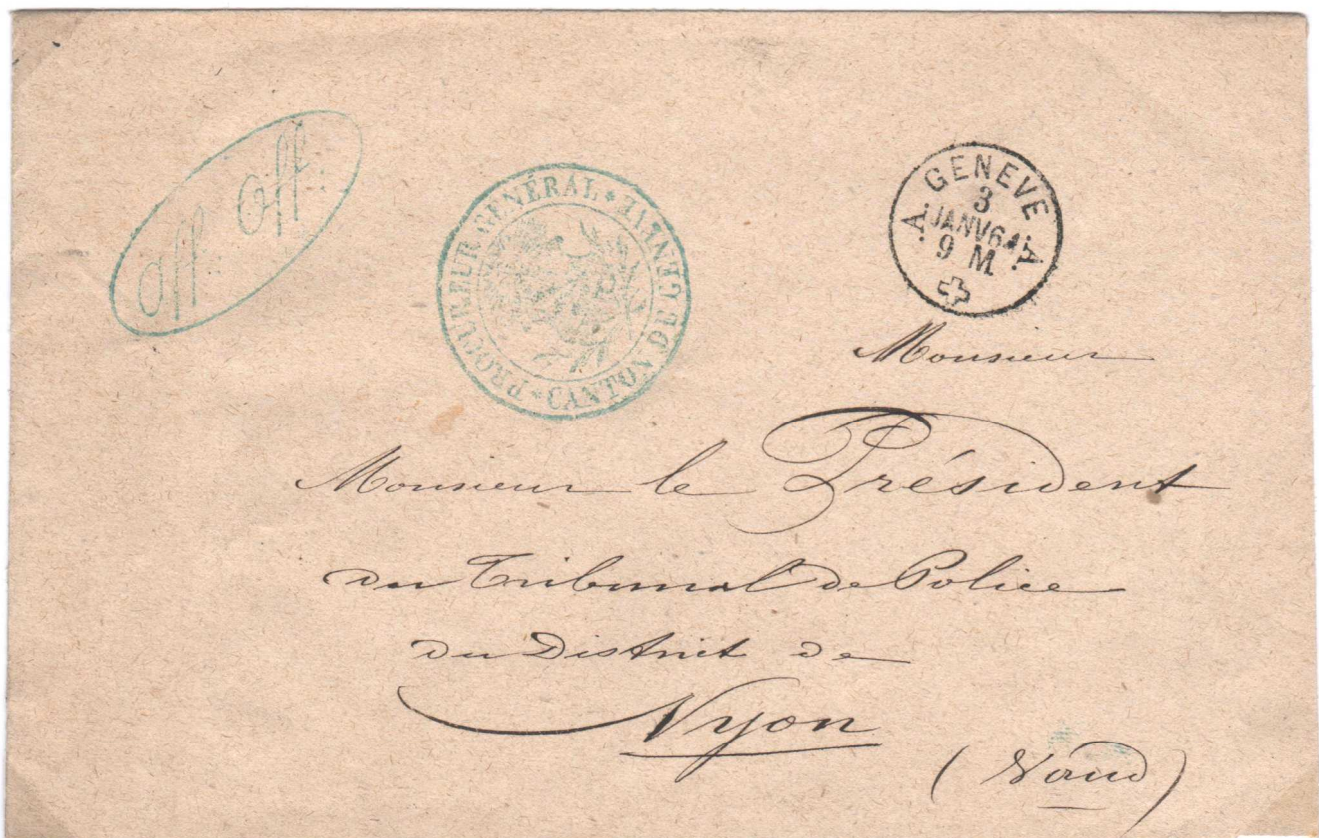 Off. Off.
PROCUREUR GÉNÉRAL * CANTON DE GENÈVE *
GENEVE
3
JANV 64
A. 9 M. A.
Monsieur
Monsieur le Président
du Tribunal de Police
du District de
Nyon
(Vaud)